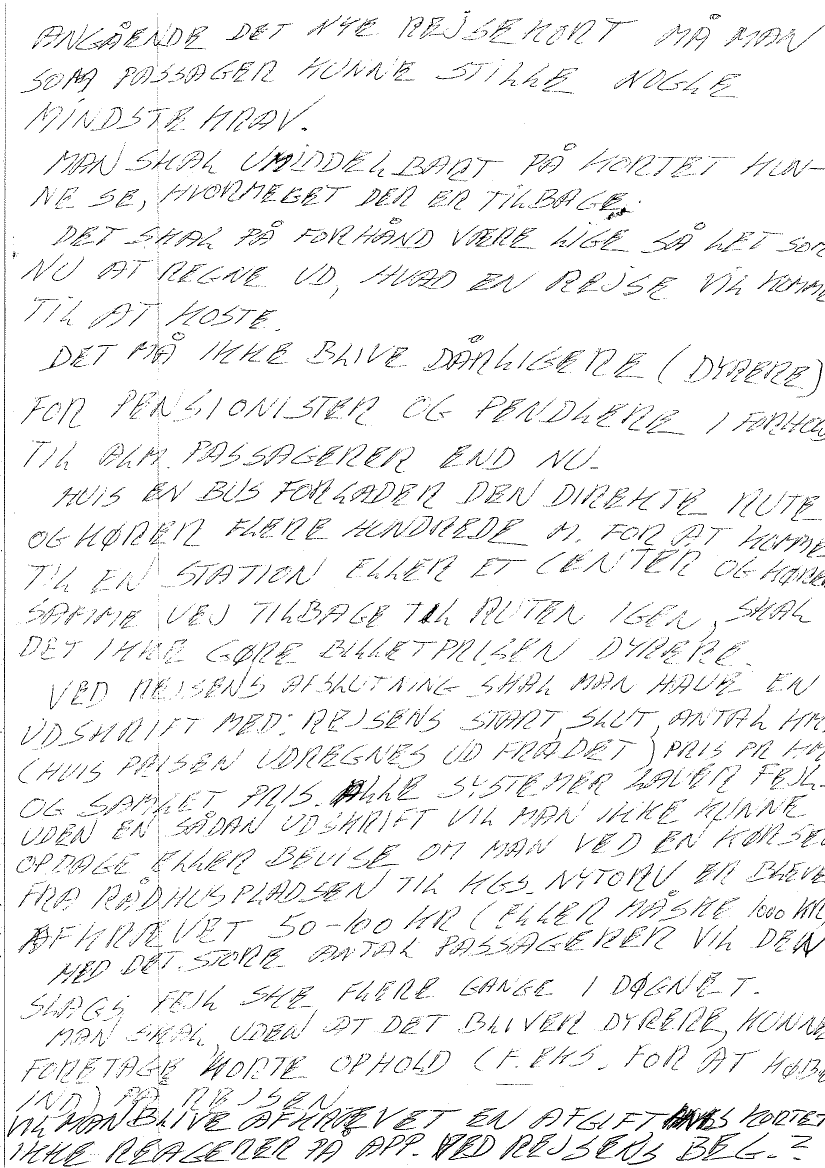 ANGÅENDE DET NYE REJSEKORT MÅ MAN
SOM PASSAGER KUNNE STILLE NOGLE
MINDSTE KRAV.
MAN SKAL UMIDDELBART PÅ KORTET KUN-
NE SE, HVORMEGET DER ER TILBAGE.
DET SKAL PÅ FORHÅND VÆRE LIGE SÅ LET SOM
NU AT REGNE UD, HVAD EN REJSE VIL KOMME
TIL AT KOSTE.
DET MÅ IKKE BLIVE DÅRLIGERE (DYRERE)
FOR PENSIONISTER OG PENDLERE I FORHOLD
TIL ALM. PASSAGERER END NU.
HVIS EN BUS FORLADER DEN DIREKTE RUTE
OG KØRER FLERE HUNDREDE M. FOR AT KOMME
TIL EN STATION ELLER ET CENTER OG KØRER
SAMME VEJ TILBAGE TIL RUTEN IGEN, SKAL
DET IKKE GØRE BILLETPRISEN DYRERE.
VED REJSENS AFSLUTNING SKAL MAN HAVE EN
UDSKRIFT MED: REJSENS START, SLUT, ANTAL KM.
(HVIS PRISEN UDREGNES UD FRA DET) PRIS PR KM
OG SAMLET PRIS. ALLE SYSTEMER LAVER FEJL.
UDEN EN SÅDAN UDSKRIFT VIL MAN IKKE KUNNE
OPDAGE ELLER BEVISE OM MAN VED EN KØRSEL
FRA RÅDHUSPLADSEN TIL KGS. NYTORV ER BLEVE
AFKRÆVET 50-100 KR (ELLER MÅSKE 1000 KR)
MED DET STORE ANTAL PASSAGERER VIL DEN
SLAGS FEJL SKE FLERE GANGE I DØGNET.
MAN SKAL, UDEN AT DET BLIVER DYRERE, KUNNE
FORETAGE KORTE OPHOLD (F.EKS. FOR AT KØBE
IND) PÅ REJSEN.
VIL MAN BLIVE AFKRÆVET EN AFGIFT HVIS KORTET
IKKE REAGERER PÅ APP. VED REJSENS BEG.?